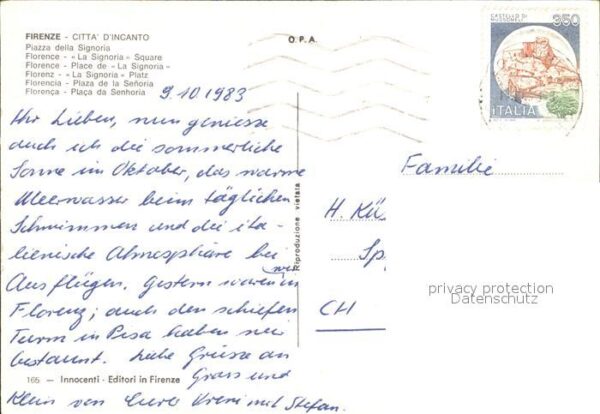 FIRENZE - CITTA' D'INCANTO
Piazza della Signoria
Florence - «La Signoria» Square
Florence - Place de «La Signoria»
Florenz - «La Signoria» Platz
Florencia - Plaza de la Señoria
Florença - Plaça da Senhoria
O.P.A.
CASTELLO DI MUSSOMELI
350
ITALIA
9.10.1983
Ihr Lieben, nun geniesse
auch ich die sommerliche
Sonne im Oktober, das warme
Meerwasser beim täglichen
Schwimmen und die ita-
lienische Atmosphäre bei
Ausflügen. Gestern waren wir in
Florenz; auch den schiefen
Turm in Pisa haben wir
bestaunt. Liebe Grüsse an
Gross und
Klein von Eurer Vreni mit Stefan.
Familie
H. Kü
Sp
CH
Riproduzione vietata
privacy protection
Datenschutz
165 - Innocenti - Editori in Firenze